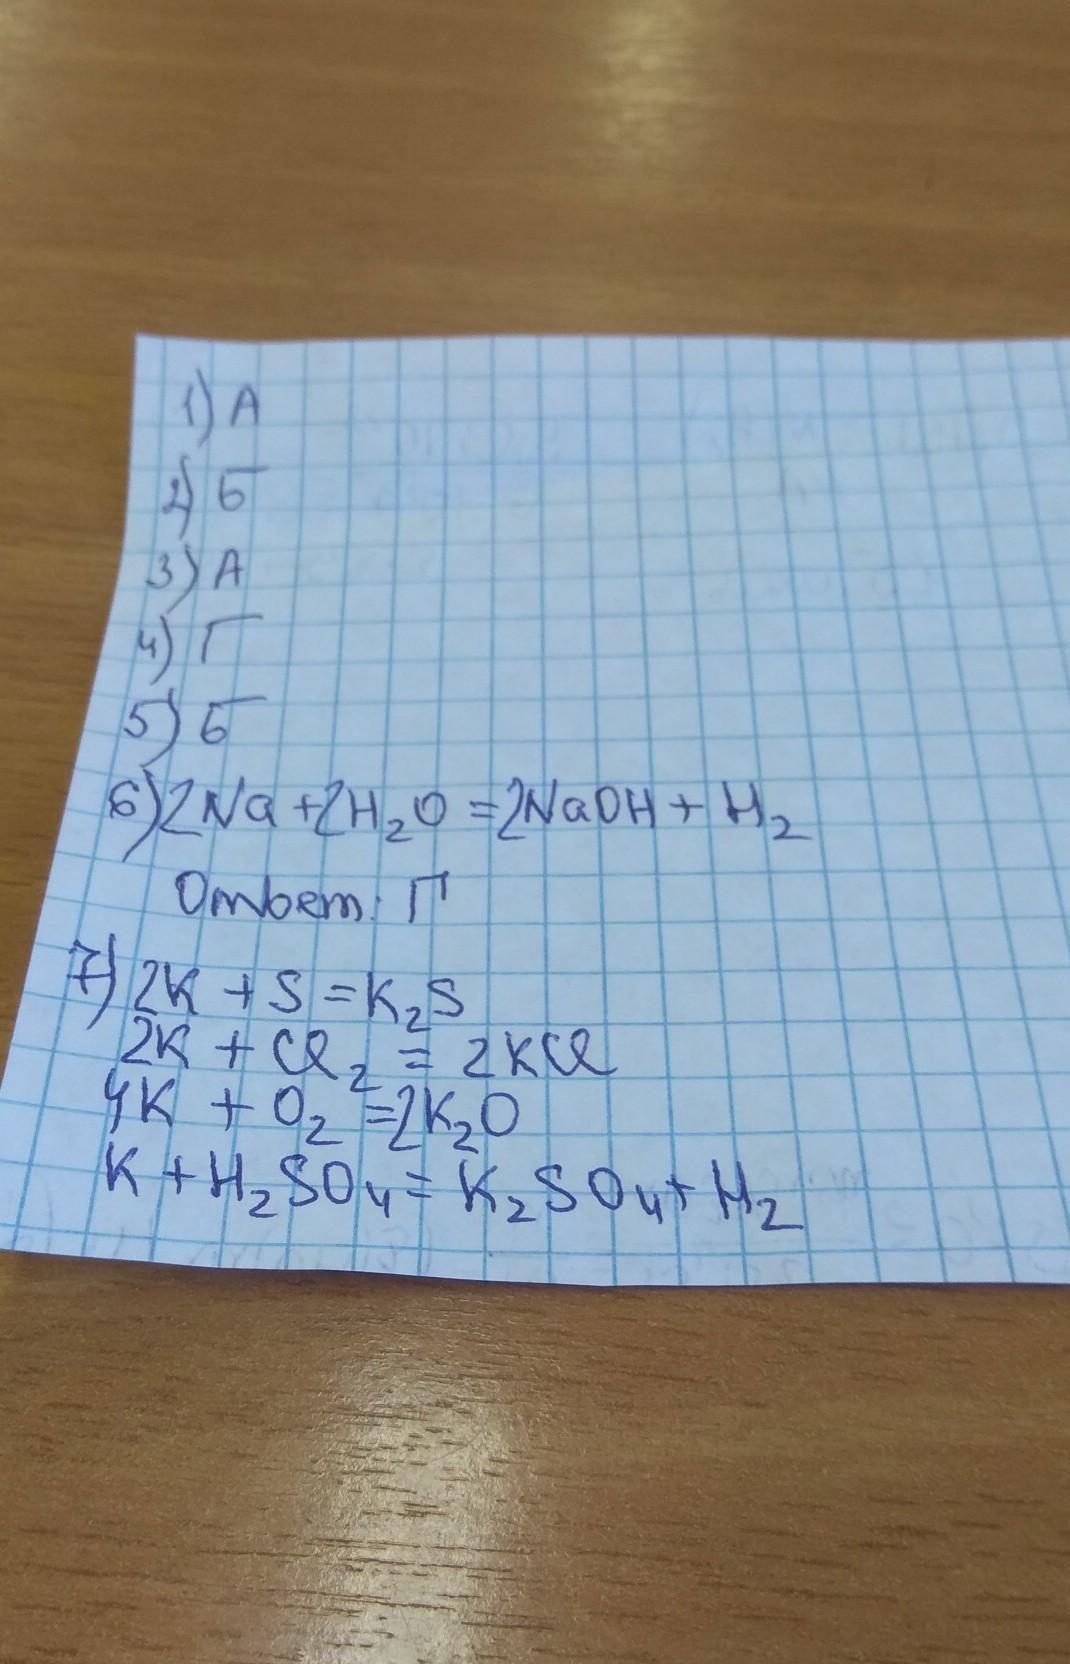 1) А
2) Б
3) А
4) Г
5) Б
6) 2Na + 2H₂O = 2NaOH + H₂
Ответ: Г
7) 2K + S = K₂S
2K + Cl₂ = 2KCl
4K + O₂ = 2K₂O
K + H₂SO₄ = K₂SO₄ + H₂